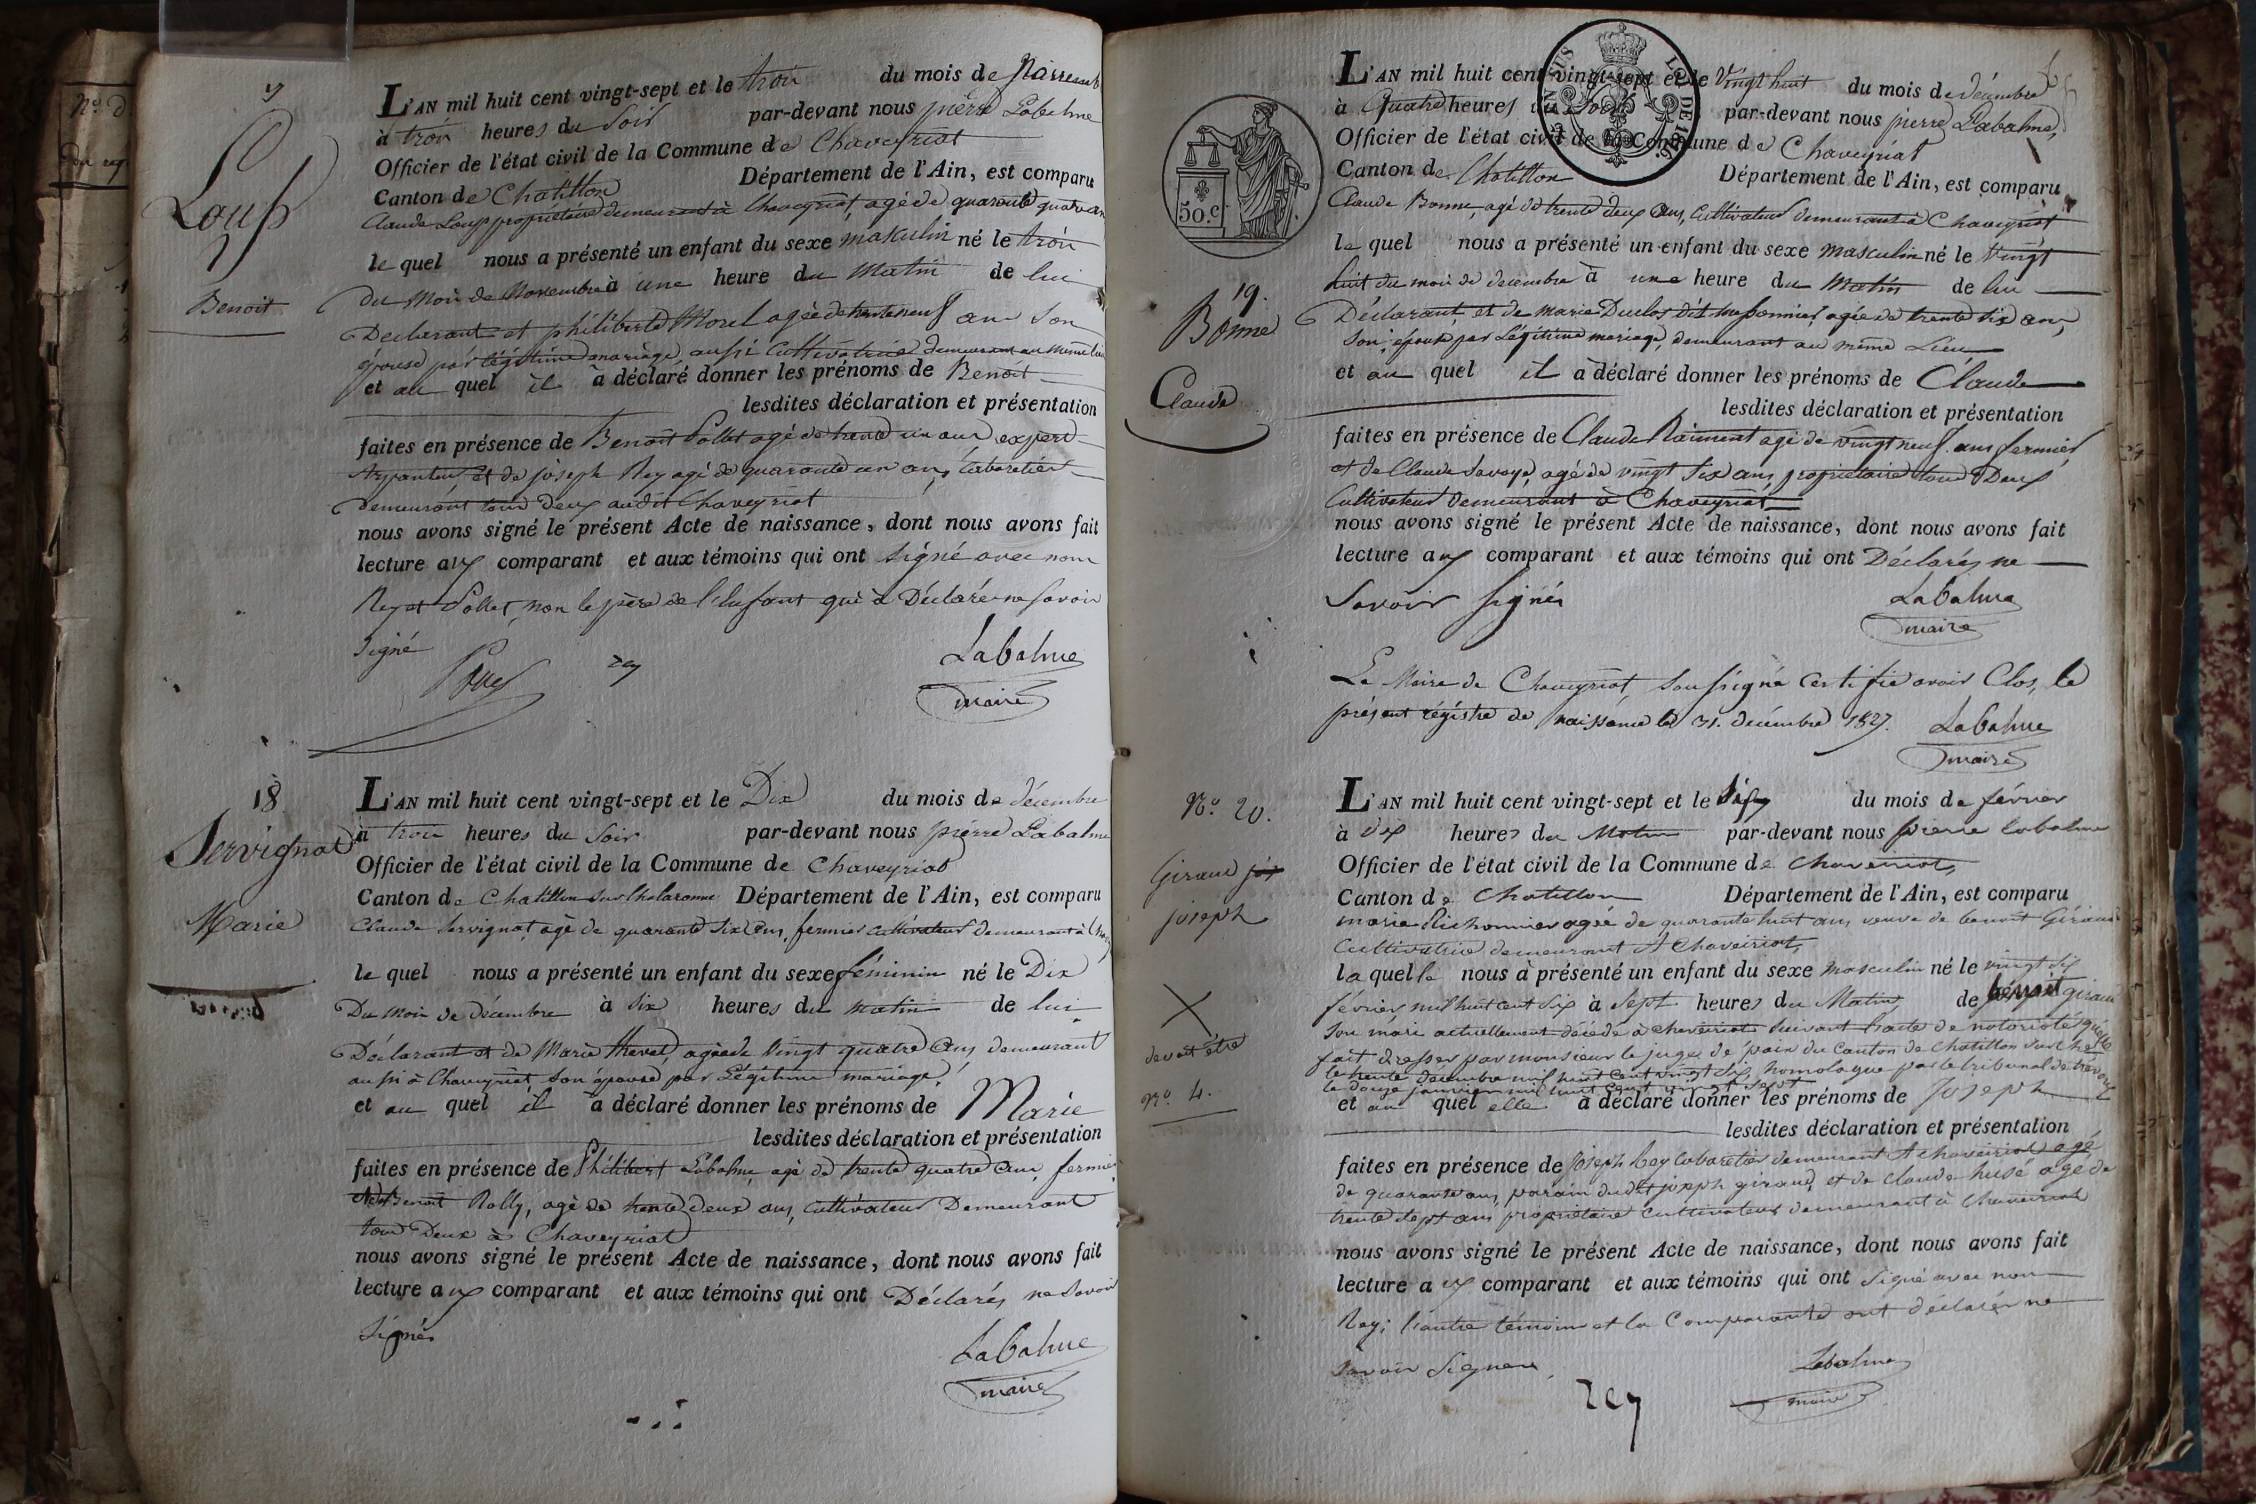 Loup
Benoit
L'AN mil huit cent vingt-sept et le trois du mois de
à trois heures du Soir par-devant nous pierre Labalme
Officier de l'état civil de la Commune de Chaveyriat
Canton de Chatillon Département de l'Ain, est comparu
Claude Loup propriétaire demeurant à Chaveyriat, agé de quarante quatre ans
le quel nous a présenté un enfant du sexe masculin né le trois
du mois de Novembre à une heure du Matin de lui
Declarant et philiberte Morel agée de trente neuf ans son
épouse par légitime mariage, aussi Cultivatrice demeurant au même lieu
et au quel il a déclaré donner les prénoms de Benoit
lesdites déclaration et présentation
faites en présence de Benoit Pollet agé de trente un ans, expert
Arpenteur et de joseph Rey agé de quarante un ans, Cabaretier
demeurant tous deux audit Chaveyriat
nous avons signé le présent Acte de naissance, dont nous avons fait
lecture aux comparant et aux témoins qui ont signé avec nous
Rey et Pollet, non le père de l'Enfant qui a Déclaré ne savoir
signé
rey
Labalme
maire
18
Servignat
Marie
L'AN mil huit cent vingt-sept et le Dix du mois de décembre
à trois heures du Soir par-devant nous pierre Labalme
Officier de l'état civil de la Commune de Chaveyriat
Canton de Chatillon sur Chalaronne Département de l'Ain, est comparu
Claude Servignat, agé de quarante six ans, fermier cultivateur demeurant à
le quel nous a présenté un enfant du sexe féminin né le Dix
Du mois de décembre à six heures du matin de lui
Déclarant et de Marie Thevet, agée de Vingt quatre ans, demeurant
aussi à Chaveyriat, son épouse par Légitime mariage,
et au quel il a déclaré donner les prénoms de Marie
lesdites déclaration et présentation
faites en présence de Philibert Labalme, agé de trente quatre ans, fermier
Benoit Rolly, agé de trente deux ans, cultivateur Demeurant
tous Deux à Chaveyriat
nous avons signé le présent Acte de naissance, dont nous avons fait
lecture aux comparant et aux témoins qui ont Déclarés ne Savoir
Signés
Labalme
maire
50 c.
LOI DE 1816.
19.
Bonne
Claude
L'AN mil huit cent vingt-sept et le Vingt huit du mois de décembre
à Quatre heures du Soir par-devant nous pierre Labalme,
Officier de l'état civil de la Commune de Chaveyriat
Canton de Chatillon Département de l'Ain, est comparu
Claude Bonne, agé de trente deux ans, Cultivateur demeurant à Chaveyriat
le quel nous a présenté un enfant du sexe masculin né le Vingt
huit du mois de decembre à une heure du Matin de lui
Déclarant et de Marie Duclos dit agée de trente six ans,
son épouse par Légitime mariage, demeurant au même Lieu
et au quel il a déclaré donner les prénoms de Claude
lesdites déclaration et présentation
faites en présence de Claude agé de vingt neuf ans fermier
et de Claude Savoye, agé de vingt six ans, propriétaire tous Deux
Cultivateurs demeurant à Chaveyriat
nous avons signé le présent Acte de naissance, dont nous avons fait
lecture aux comparant et aux témoins qui ont Déclarés ne
Savoir Signés
Labalme
maire
Le Maire de Chaveyriat soussigné certifie avoir Clos, le
présent régistre de naissance le 31. décembre 1827.
Labalme
maire
No. 20.
Giraud
joseph
devait être
No. 4.
L'AN mil huit cent vingt-sept et le du mois de février
à dix heures du Matin par-devant nous pierre labalme
Officier de l'état civil de la Commune de chaveiriat,
Canton de Chatillon Département de l'Ain, est comparu
marie agée de quarante huit ans, veuve de benoit Giraud
Cultivatrice demeurant A Chaveiriat,
laquelle nous a présenté un enfant du sexe masculin né le vingt six
février mil huit cent six à Sept heures du Matin, de benoit giraud
son mari actuellement décédé a chaveiriat suivant l'acte de notoriété quelle
fait dresser par monsieur le juge de paix du Canton de Chatillon
le trente décembre mil huit cent vingt six, homologué par le tribunal de trévoux
le douze janvier mil huit cent vingt sept
et au quel elle a déclaré donner les prénoms de joseph
lesdites déclaration et présentation
faites en présence de joseph Rey Cabaretier demeurant A chaveiriat agé
de quarante ans, parain dudit joseph giraud, et de claude agé de
trente sept ans propriétaire cultivateur demeurant à Chaveiriat
nous avons signé le présent Acte de naissance, dont nous avons fait
lecture aux comparant et aux témoins qui ont Signé avec nous
Rey; l'autre témoin et la Comparante ont déclarés ne
savoir Signer,
rey
Labalme
maire